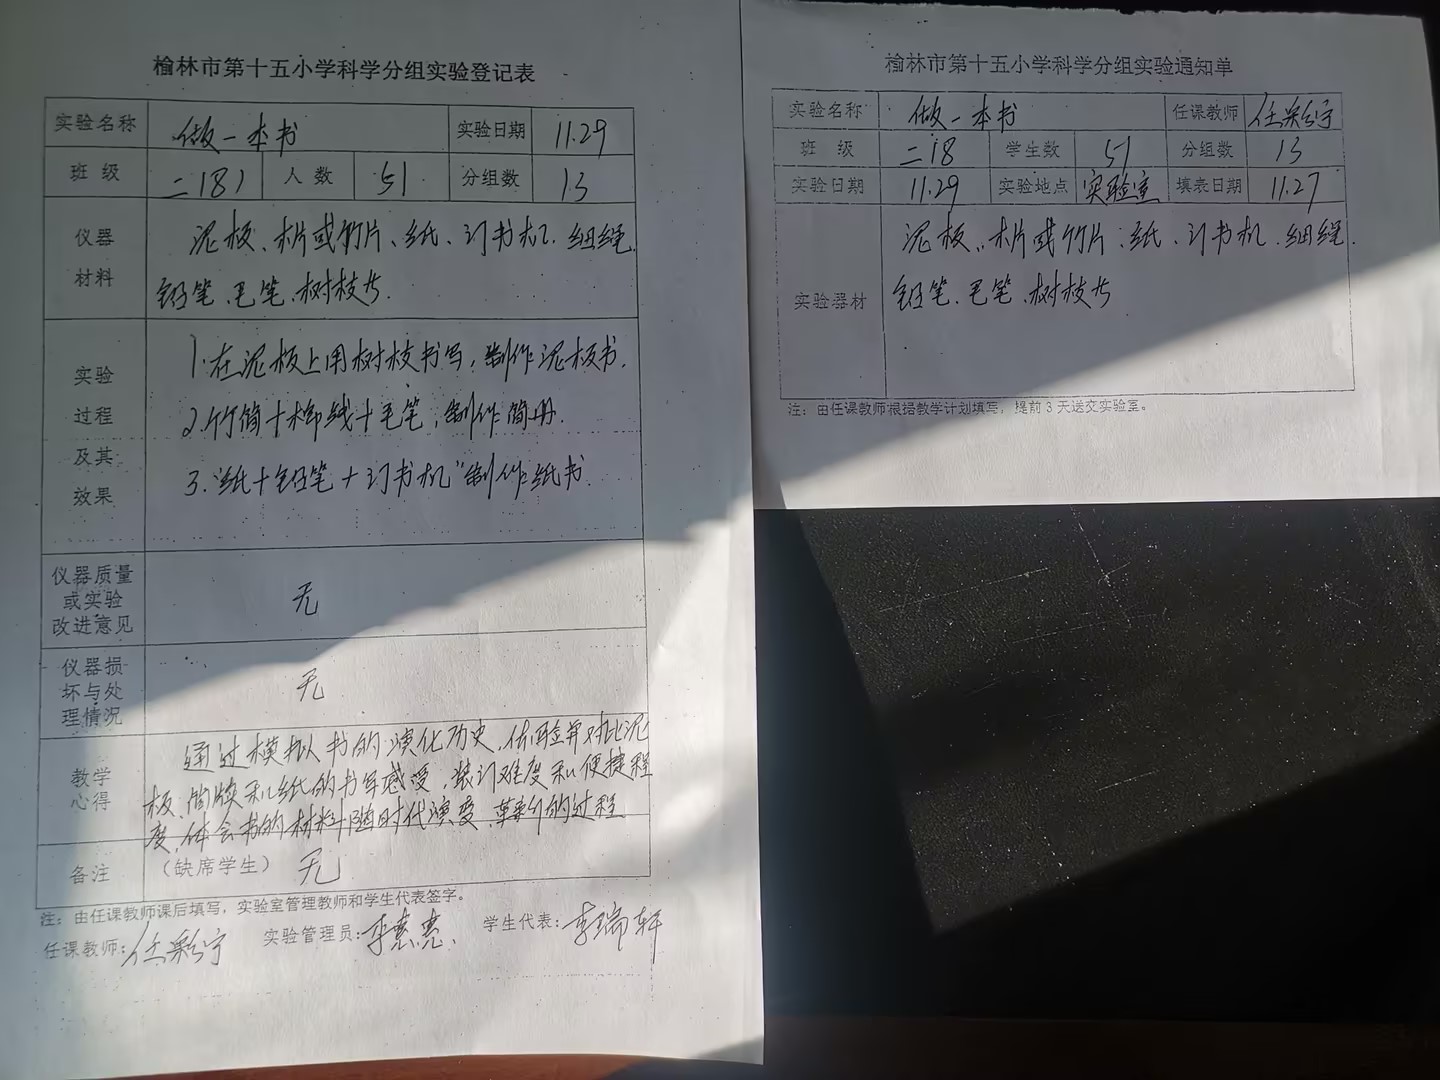 榆林市第十五小学科学分组实验登记表
实验名称 做一本书 实验日期 11.29
班 级 二(8) 人 数 51 分组数 13
仪器
材料
泥板、木片或竹片、纸、订书机、细绳、
铅笔、毛笔、树枝等
实验
过程
及其
效果
1.在泥板上用树枝书写，制作泥板书.
2.竹简+棉线+毛笔，制作简册.
3."纸+铅笔+订书机"制作纸书.
仪器质量
或实验
改进意见
无
仪器损
坏与处
理情况
无
教学
心得
通过模拟书的演化历史，体验并对比泥
板、简牍和纸的书写感受，装订难度和便捷程
度，体会书的材料随时代演变、革新的过程
备注 （缺席学生） 无
注：由任课教师课后填写，实验室管理教师和学生代表签字。
任课教师：任彩宁 实验管理员： 学生代表：李瑞轩
榆林市第十五小学科学分组实验通知单
实验名称 做一本书 任课教师 任彩宁
班 级 二18 学生数 51 分组数 13
实验日期 11.29 实验地点 实验室 填表日期 11.27
实验器材
泥板、木片或竹片、纸、订书机、细绳、
铅笔、毛笔、树枝等
注：由任课教师根据教学计划填写，提前3天送交实验室。